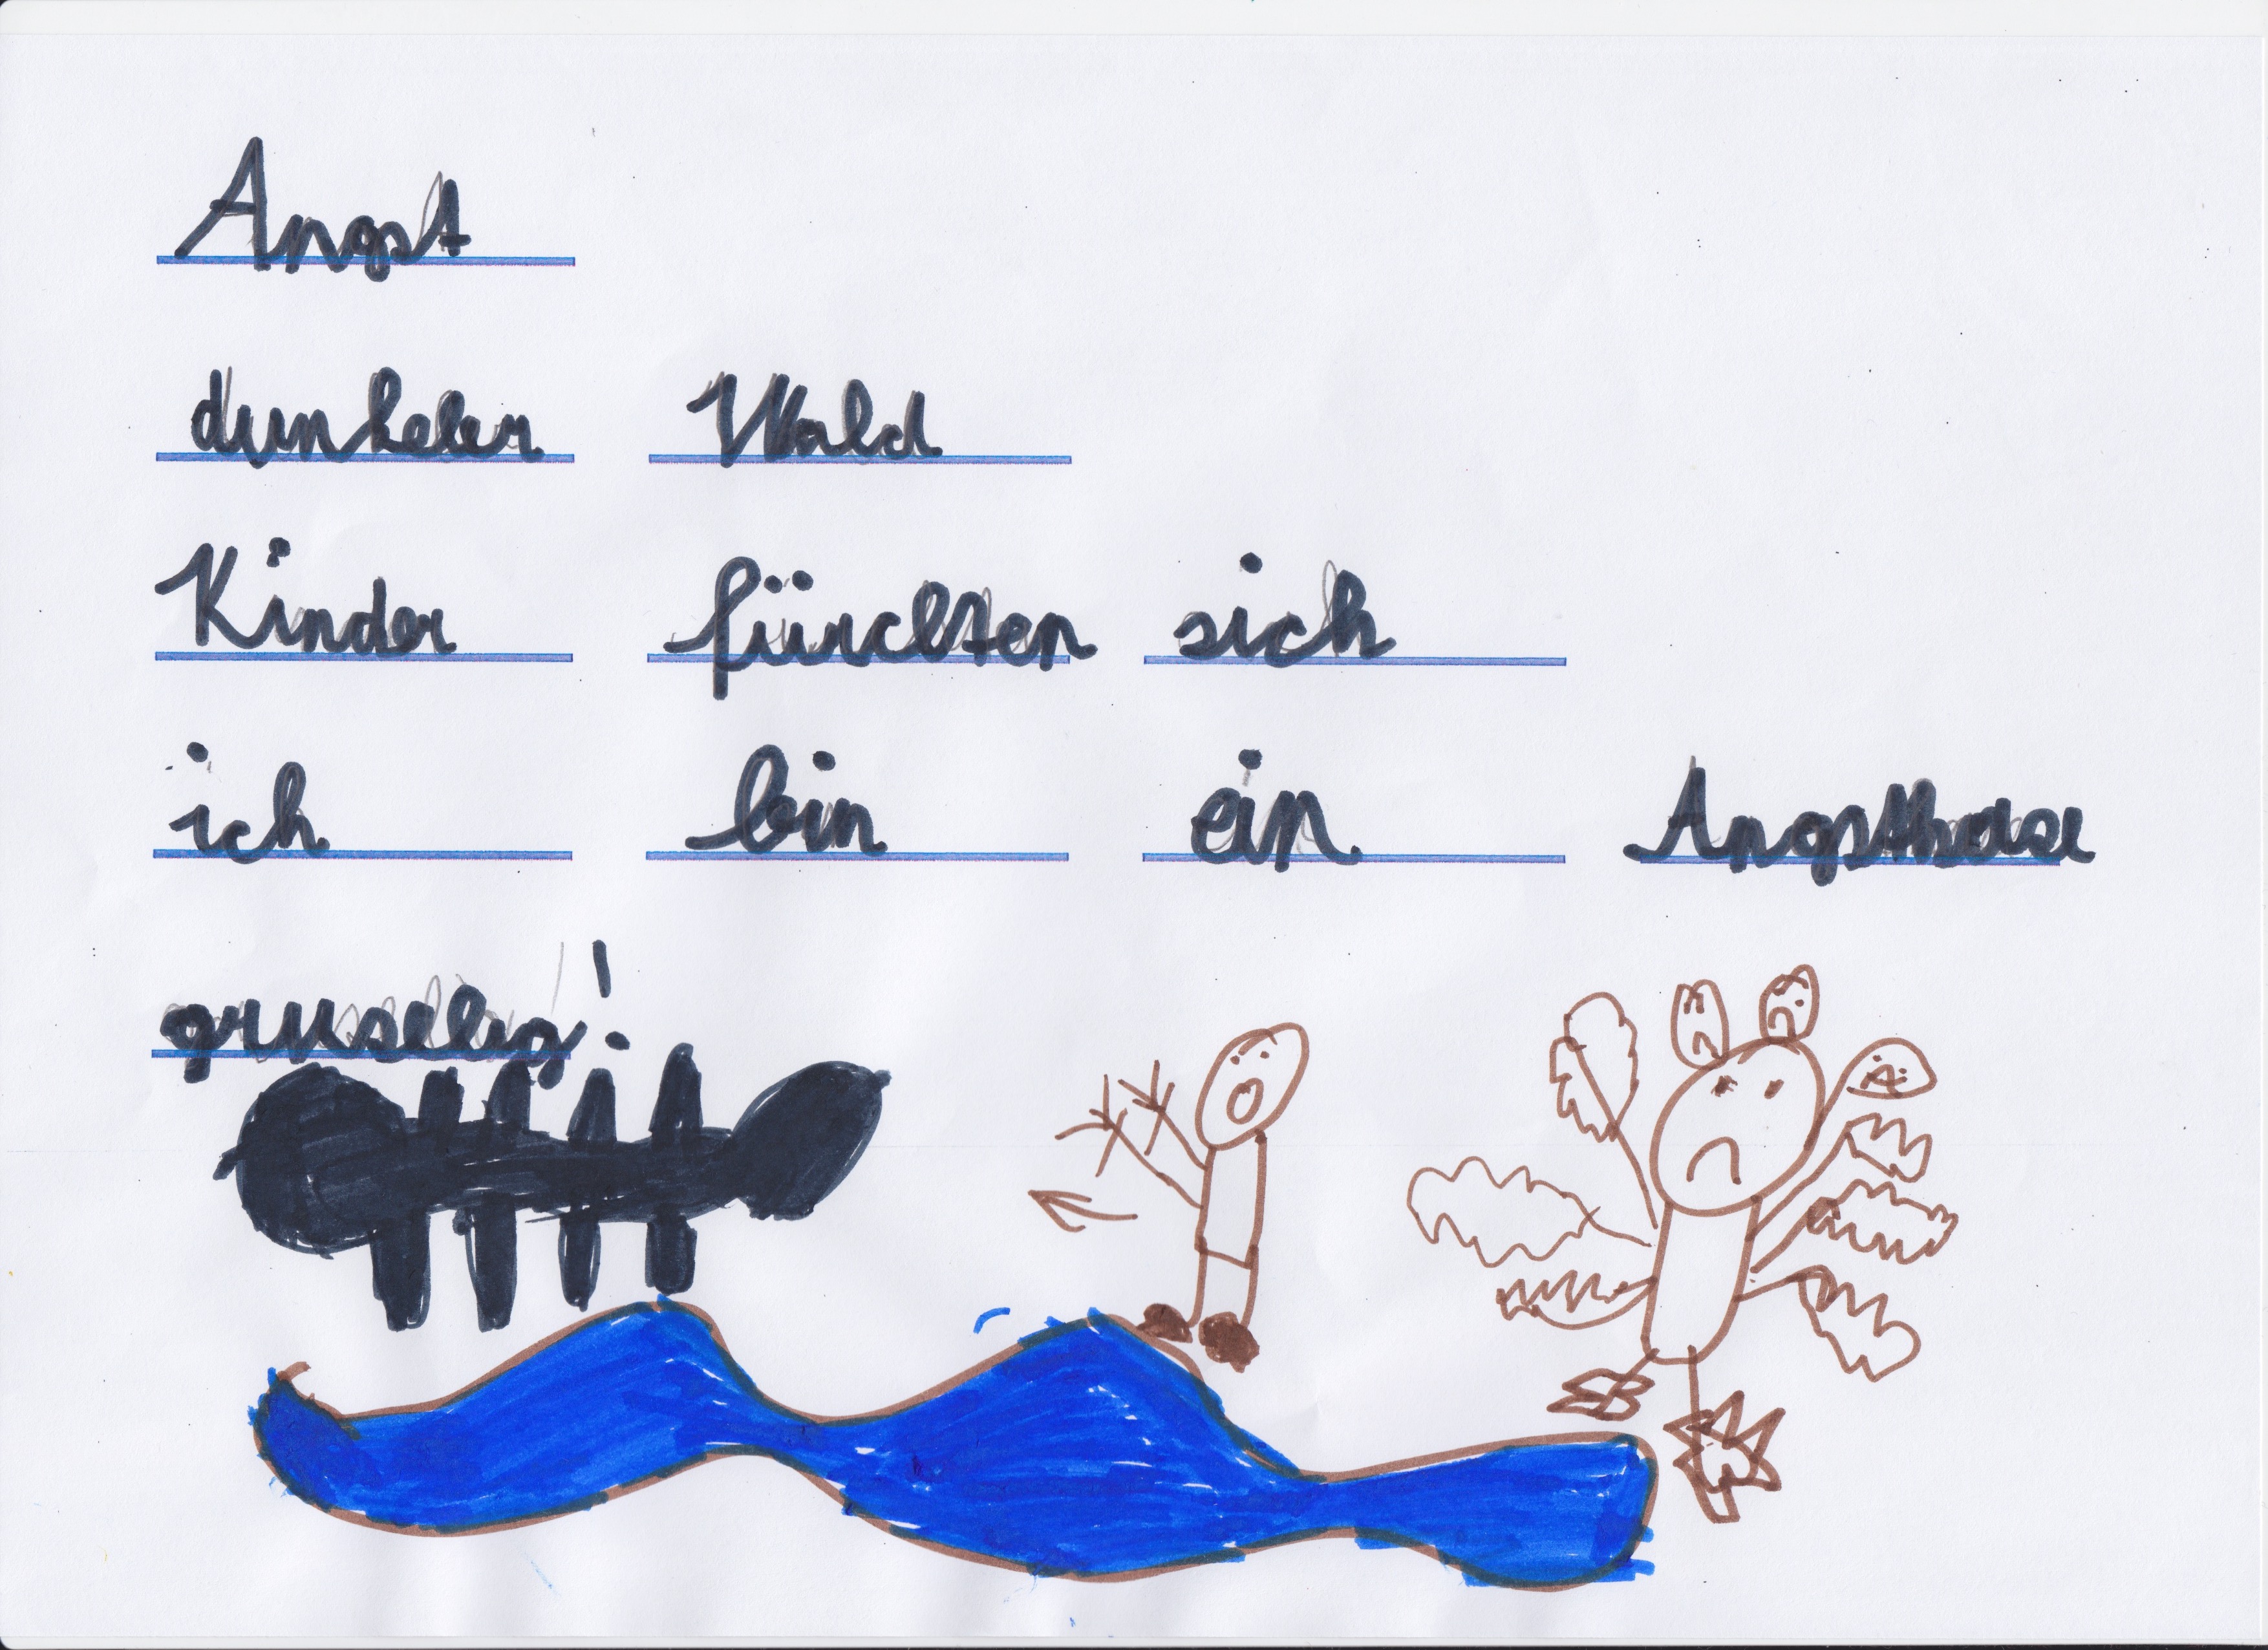 Angst
dunkeler Wald
Kinder fürchten sich
ich bin ein Angsthase
gruselig!